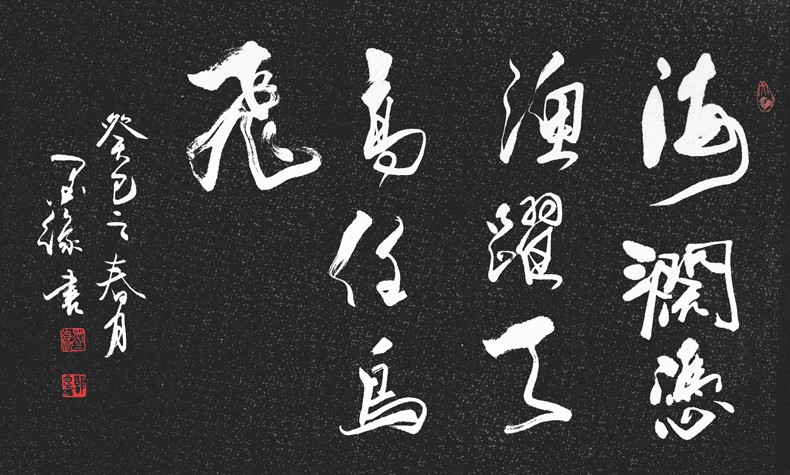 海濶憑
漁躍天
高任鳥
飛
癸巳之春月
緣書